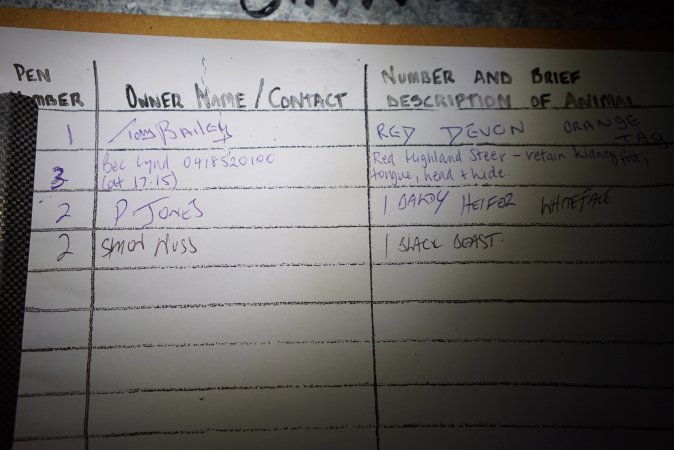 PEN NUMBER OWNER NAME / CONTACT NUMBER AND BRIEF DESCRIPTION OF ANIMAL
1 Tony BAILEY RED DEVON ORANGE TAG
3 Bec Lynd 0418520100 (at 17.15) Red Highland Steer - retain kidney fat, tongue, head & hide.
2 P JONES 1 HEIFER WHITEFACE
2 SIMON 1 BLACK BEAST.